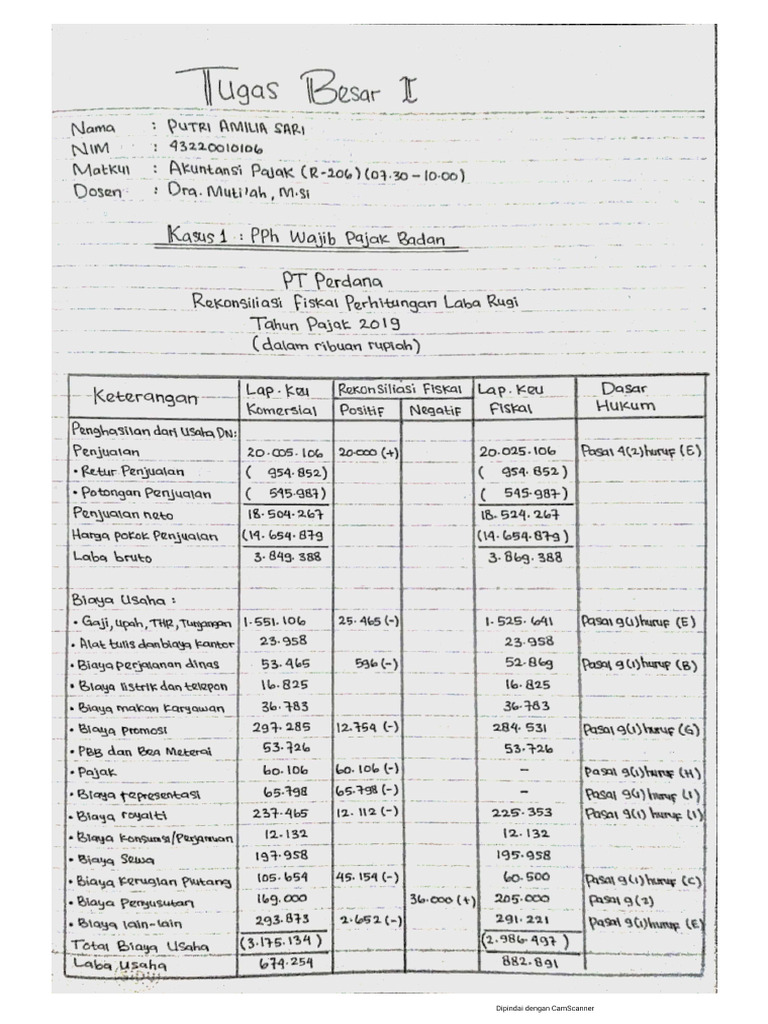 Tugas Besar I
Nama : PUTRI AMILIA SARI
NIM : 43220010106
Matkul : Akuntansi Pajak (R-206) (07.30 – 10.00)
Dosen : Dra. Muti'ah, M.Si
Kasus 1 : PPh Wajib Pajak Badan
PT Perdana
Rekonsiliasi Fiskal Perhitungan Laba Rugi
Tahun Pajak 2019
(dalam ribuan rupiah)
Keterangan Lap. Keu Komersial Rekonsiliasi Fiskal Positif Negatif Lap. Keu Fiskal Dasar Hukum
Penghasilan dari Usaha DN:
Penjualan 20.005.106 20.000 (+) 20.025.106 Pasal 4(2) huruf (E)
• Retur Penjualan ( 954.852) ( 954.852)
• Potongan Penjualan ( 545.987) ( 545.987)
Penjualan neto 18.504.267 18.524.267
Harga pokok Penjualan (14.654.879 (14.654.879)
Laba bruto 3.849.388 3.869.388
Biaya Usaha :
• Gaji, upah, THR, Tunjangan 1.551.106 25.465 (-) 1.525.641 Pasal 9(1) huruf (E)
• Alat tulis dan biaya kantor 23.958 23.958
• Biaya perjalanan dinas 53.465 596 (-) 52.869 Pasal 9(1) huruf (B)
• Biaya listrik dan telepon 16.825 16.825
• Biaya makan karyawan 36.783 36.783
• Biaya promosi 297.285 12.754 (-) 284.531 Pasal 9(1) huruf (G)
• PBB dan Bea Meterai 53.726 53.726
• Pajak 60.106 60.106 (-) – Pasal 9(1) huruf (H)
• Biaya representasi 65.798 65.798 (-) – Pasal 9(1) huruf (I)
• Biaya royalti 237.465 12.112 (-) 225.353 Pasal 9(1) huruf (I)
• Biaya konsumsi/Perjamuan 12.132 12.132
• Biaya Sewa 197.958 195.958
• Biaya Kerugian Piutang 105.654 45.154 (-) 60.500 Pasal 9(1) huruf (C)
• Biaya Penyusutan 169.000 36.000 (+) 205.000 Pasal 9(2)
• Biaya lain-lain 293.873 2.652 (-) 291.221 Pasal 9(1) huruf (E)
Total Biaya Usaha (3.175.134) (2.986.497)
Laba Usaha 674.254 882.891
Dipindai dengan CamScanner